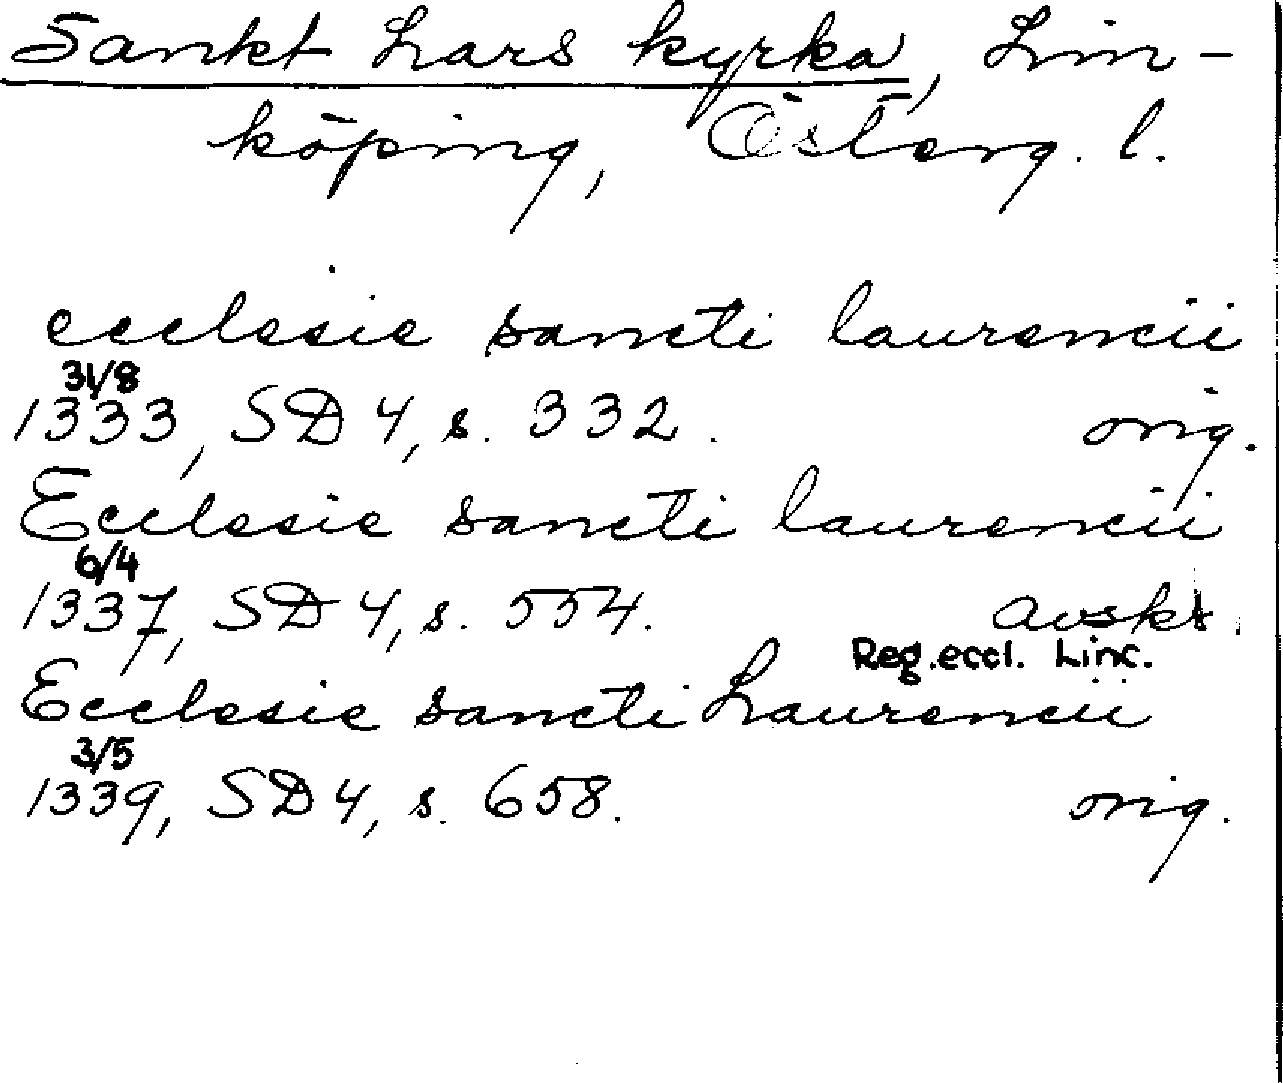 Sankt Lars kyrka, Lin-
köping, Österg. l.
ecclesie sancti laurencii
31/8
1333, SD 4, s. 332. orig.
Ecclesie sancti laurencii
6/4
1337, SD 4, s. 554. avskr.
Reg. eccl. Linc.
Ecclesie sancti Laurencii
3/5
1339, SD 4, s. 658. orig.